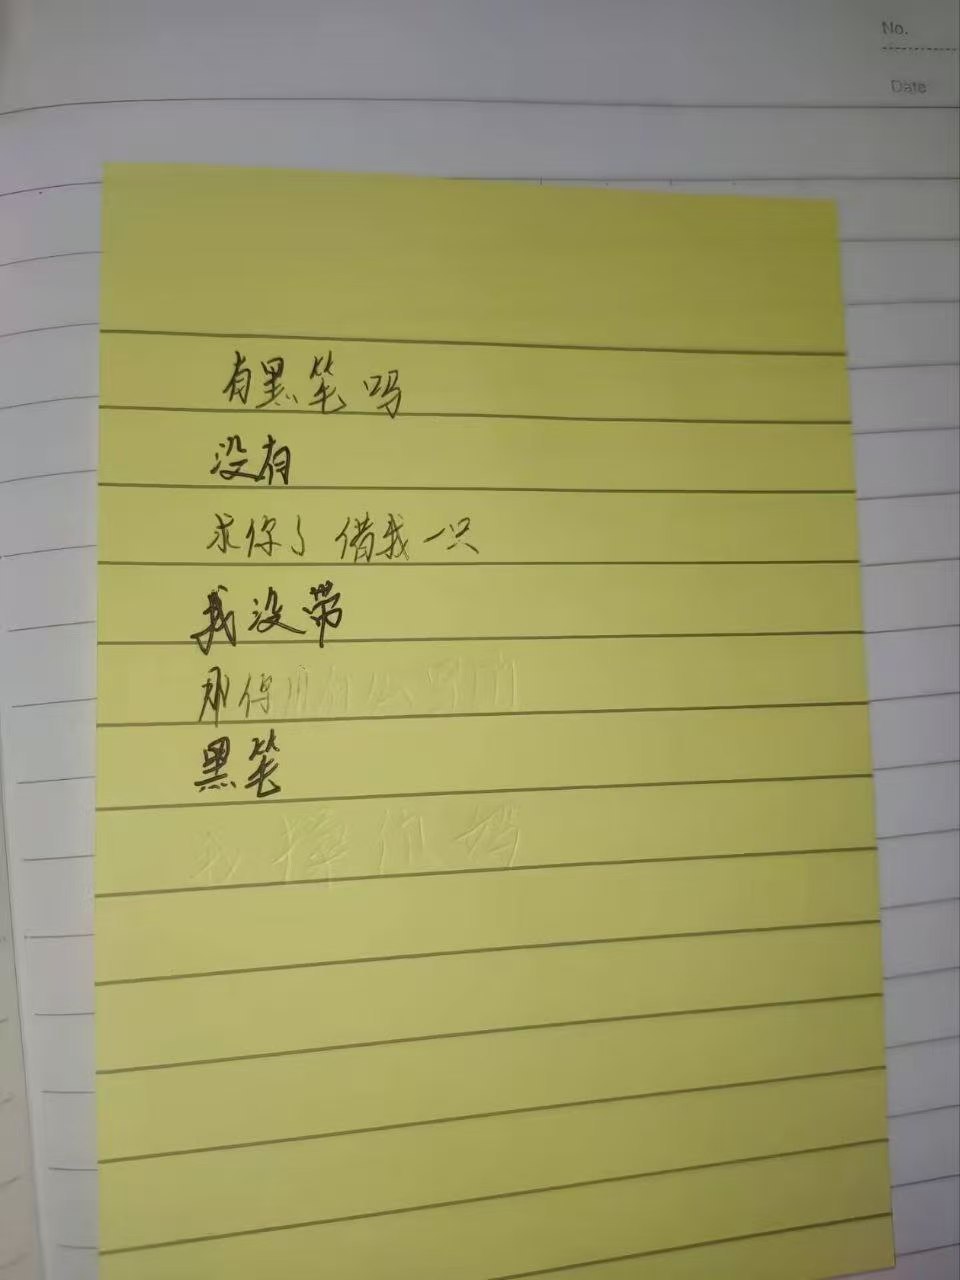 No.
Date
有黑笔吗
没有
求你了 借我一只
我没带
那你用什么写的
黑笔
我 你妈